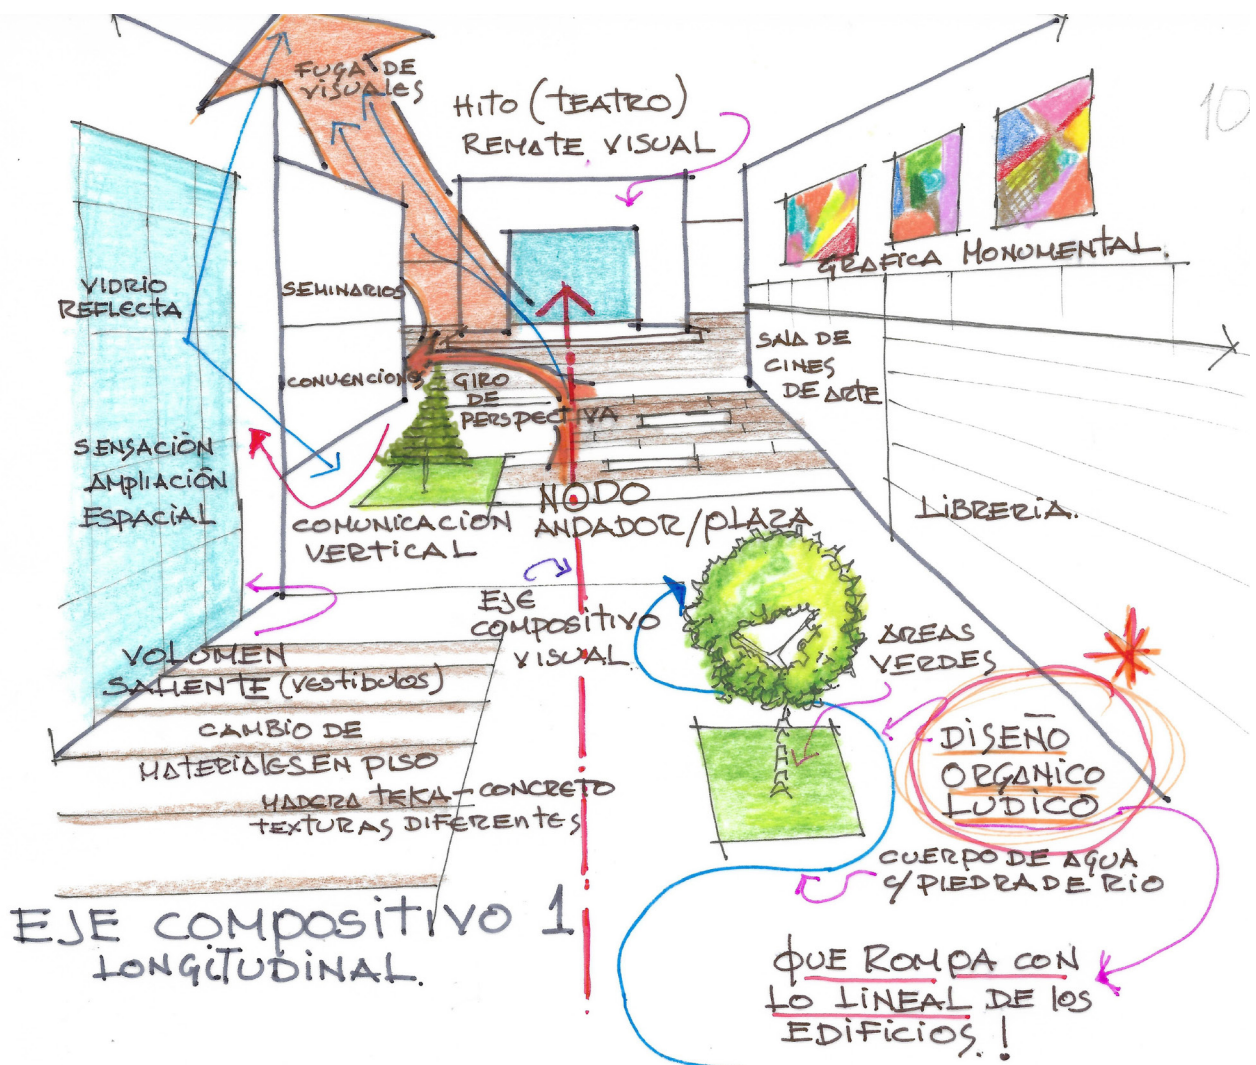 FUGA DE
VISUALES
HITO (TEATRO)
REMATE VISUAL
10
GRAFICA MONUMENTAL.
VIDRIO
REFLECTA
SEMINARIOS
CONVENCIONES
GIRO
DE
PERSPECTIVA
SALA DE
CINES
DE ARTE
SENSACIÓN
AMPLIACIÓN
ESPACIAL
COMUNICACION
VERTICAL
NODO
ANDADOR/PLAZA
LIBRERIA.
EJE
COMPOSITIVO
VISUAL.
AREAS
VERDES
VOLUMEN
SALIENTE (VESTIBULOS)
CAMBIO DE
MATERIALES EN PISO
MADERA TEKA - CONCRETO
TEXTURAS DIFERENTES
DISEÑO
ORGANICO
LUDICO
CUERPO DE AGUA
C/PIEDRA DE RIO
EJE COMPOSITIVO 1
LONGITUDINAL.
QUE ROMPA CON
LO LINEAL DE LOS
EDIFICIOS.!